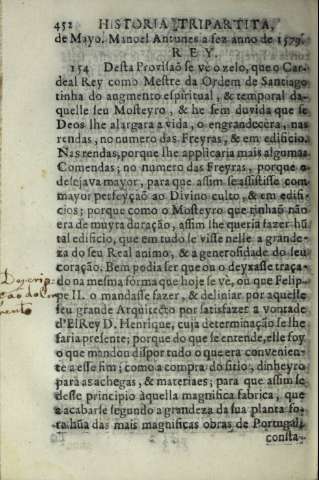 452 HISTORIA TRIPARTITA,
de Mayo. Manoel Antunes a fez anno de 1579.
REY.
154 Desta Provisaõ se ve o zelo, que o Car-
deal Rey como Mestre da Ordem de Santiago
tinha do augmento espiritual, & temporal da-
quelle seu Mosteyro, & he sem duvida que se
Deos lhe alargara a vida, o engrandecèra, nas
rendas, no numero das Freyras, & em edificio.
Nas rendas, porque lhe applicaria mais algumas
Comendas; no numero das Freyras, porque o
desejava mayor, para que assim se assistisse com
mayor perfeyçaõ ao Divino culto, & em edifi-
cios; porque como o Mosteyro que tinhaõ não
era de muyta duração, assim lhe queria fazer hũ
tal edificio, que em tudo se visse nelle a grande-
za do seu Real animo, & a generosidade do seu
coração. Bem podia ser que ou o deyxasse traça-
do na mesma fórma que hoje se vé, ou que Felip-
pe II. o mandasse fazer, & deliniar por aquelle
seu grande Arquitecto por satisfazer a vontade
d'ElRey D. Henrique, cuja determinação se lhe
faria presente; porque do que se entende, elle foy
o que mandou dispor tudo o que era convenien-
te a esse fim; como a compra do sitio, dinheyro
para as achegas, & materiaes; para que assim se
desse principio àquella magnifica fabrica, que
a acabarse segundo a grandeza da sua planta fo-
ra hũa das mais magnificas obras de Portugal,
consta-
Descrip-
ção do Con
vento